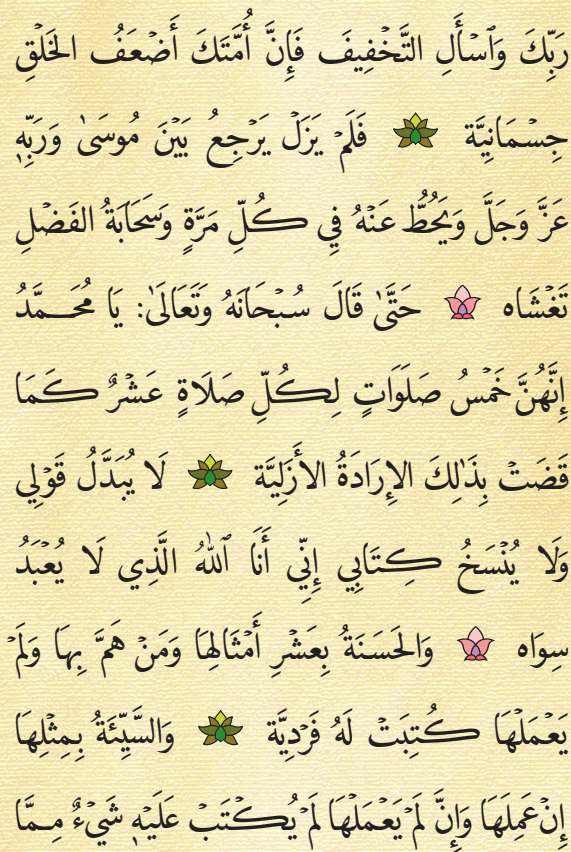 رَبِّكَ وَٱسْأَلِ التَّخْفِيفَ فَإِنَّ أُمَّتَكَ أَضْعَفُ الخَلْقِ
جِسْمَانِيَّة فَلَمْ يَزَلْ يَرْجِعُ بَيْنَ مُوسَىٰ وَرَبِّهِ
عَزَّ وَجَلَّ وَيَحُطُّ عَنْهُ فِي كُلِّ مَرَّةٍ وَسَحَابَةُ الفَضْلِ
تَغْشَاه حَتَّىٰ قَالَ سُبْحَانَهُ وَتَعَالَىٰ: يَا مُحَمَّدُ
إِنَّهُنَّ خَمْسُ صَلَوَاتٍ لِكُلِّ صَلَاةٍ عَشْرٌ كَمَا
قَضَتْ بِذَٰلِكَ الإِرَادَةُ الأَزَلِيَّة لَا يُبَدَّلُ قَوْلِي
وَلَا يُنْسَخُ كِتَابِي إِنِّي أَنَا ٱللهُ الَّذِي لَا يُعْبَدُ
سِوَاه وَالحَسَنَةُ بِعَشْرِ أَمْثَالِهَا وَمَنْ هَمَّ بِهَا وَلَمْ
يَعْمَلْهَا كُتِبَتْ لَهُ فَرْدِيَّة وَالسَّيِّئَةُ بِمِثْلِهَا
إِنْ عَمِلَهَا وَإِنَّ لَمْ يَعْمَلْهَا لَمْ يُكْتَبْ عَلَيْهِ شَيْءٌ مِمَّا